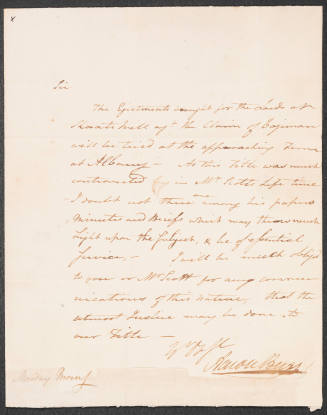 Sir
The Ejectments brought for the Lands at
will be tried at the approaching Term
at Albany – As this Title was much
controverted by in Mr Scotts Life time
I doubt not there are among his papers
Minutes and Briefs which may throw much
Light upon the Subject, & be of essential
Service. – I will be much oblig'd
to you or Mr Scott for any commu-
nications of this nature, that the
utmost Justice may be done to
our Title –
Aaron Burr
Monday Morng